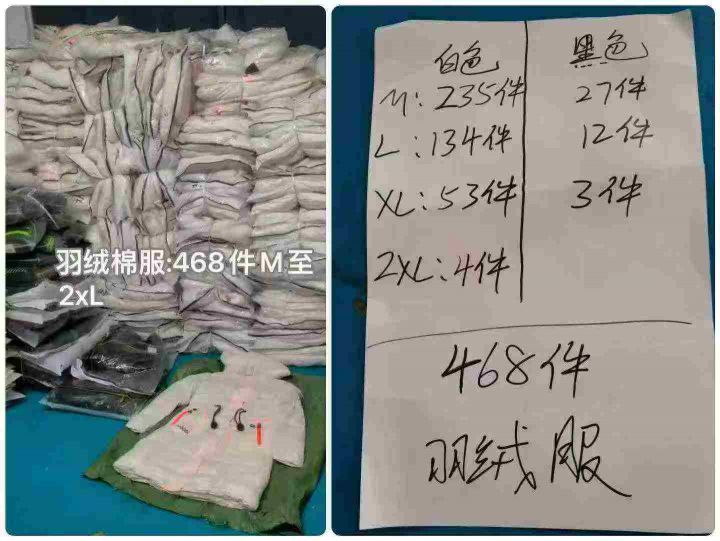 羽绒棉服:468件M至
2xL
白色
黑色
M:235件
27件
L:134件
12件
XL:53件
3件
2XL:4件
468件
羽绒服